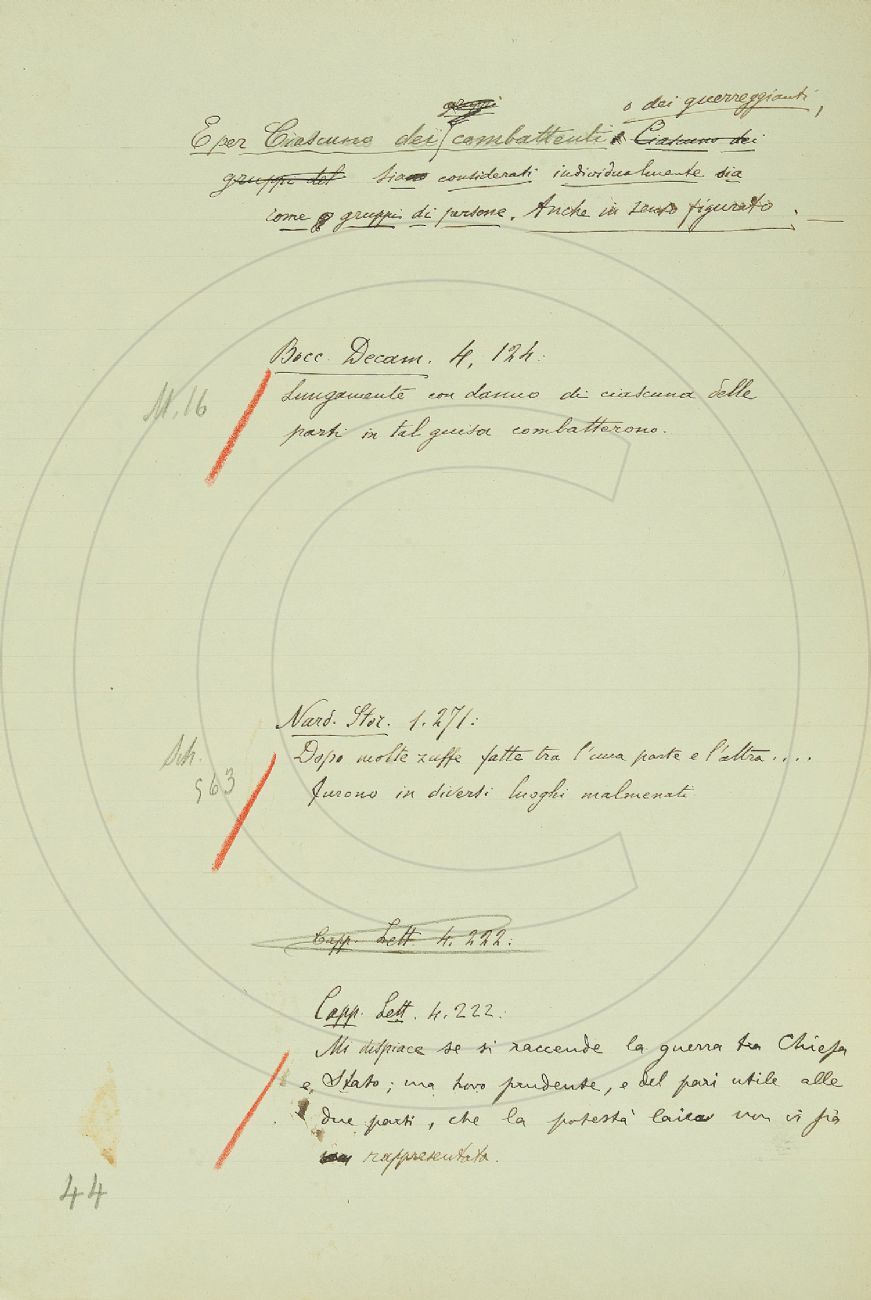 o dei guerreggianti,
E per Ciascuno dei combattenti Ciascuno dei
gruppi del sia considerati individualmente sia
come gruppi di persone. Anche in senso figurato. —
Bocc. Decam. 4, 124:
M. 16
Lungamente con danno di ciascuna delle
parti in tal guisa combatterono.
Nard. Stor. 1. 271:
Sch.
963
Dopo molte zuffe fatte tra l'una parte e l'altra....
furono in diversi luoghi malmenati
Capp. Lett. 4. 222:
Capp. Lett. 4. 222:
Mi dispiace se si raccende la guerra tra Chiesa
e Stato; ma trovo prudente, e del pari utile alle
due parti, che la potestà laica non vi sia
rappresentata.
44